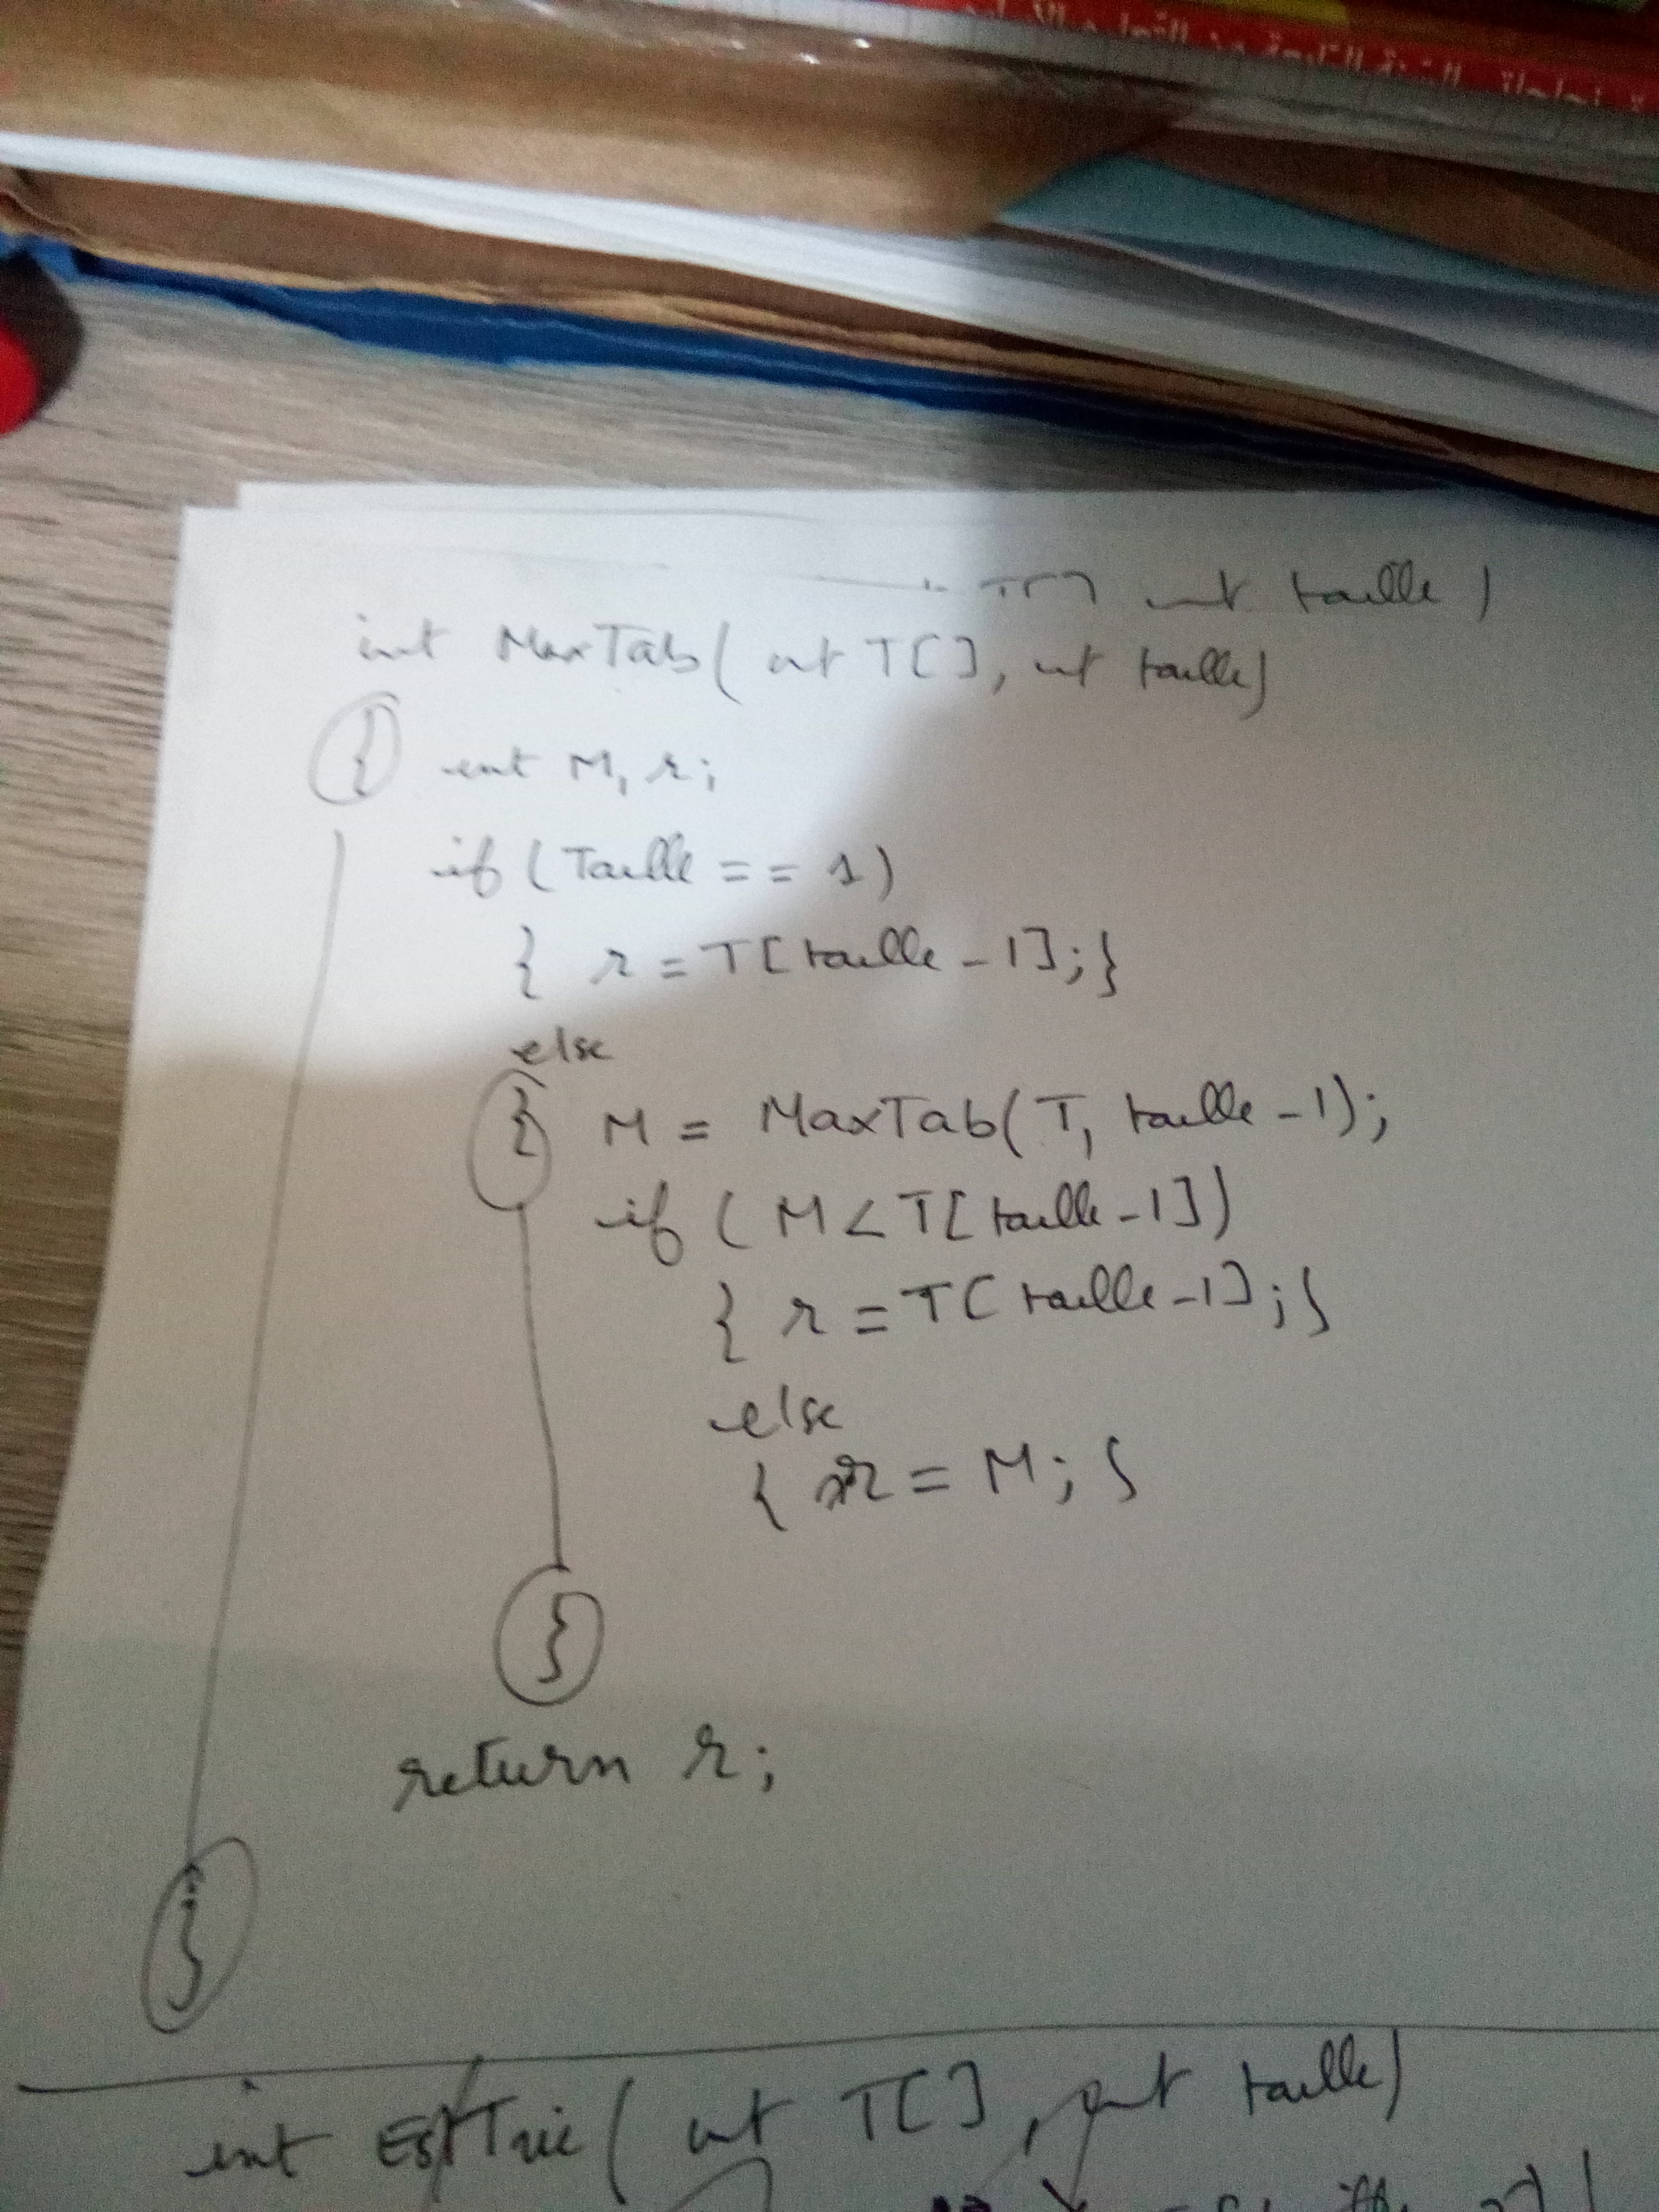 T[] int taille)
int MaxTab( int T[], int taille)
{ int M, r;
if (Taille == 1)
{ r = T[taille - 1]; }
else
{ M = MaxTab(T, taille - 1);
if ( M < T[taille - 1])
{ r = T[taille - 1]; }
else
{ r = M; }
}
return r;
}
int EstTrie( int T[], int taille)